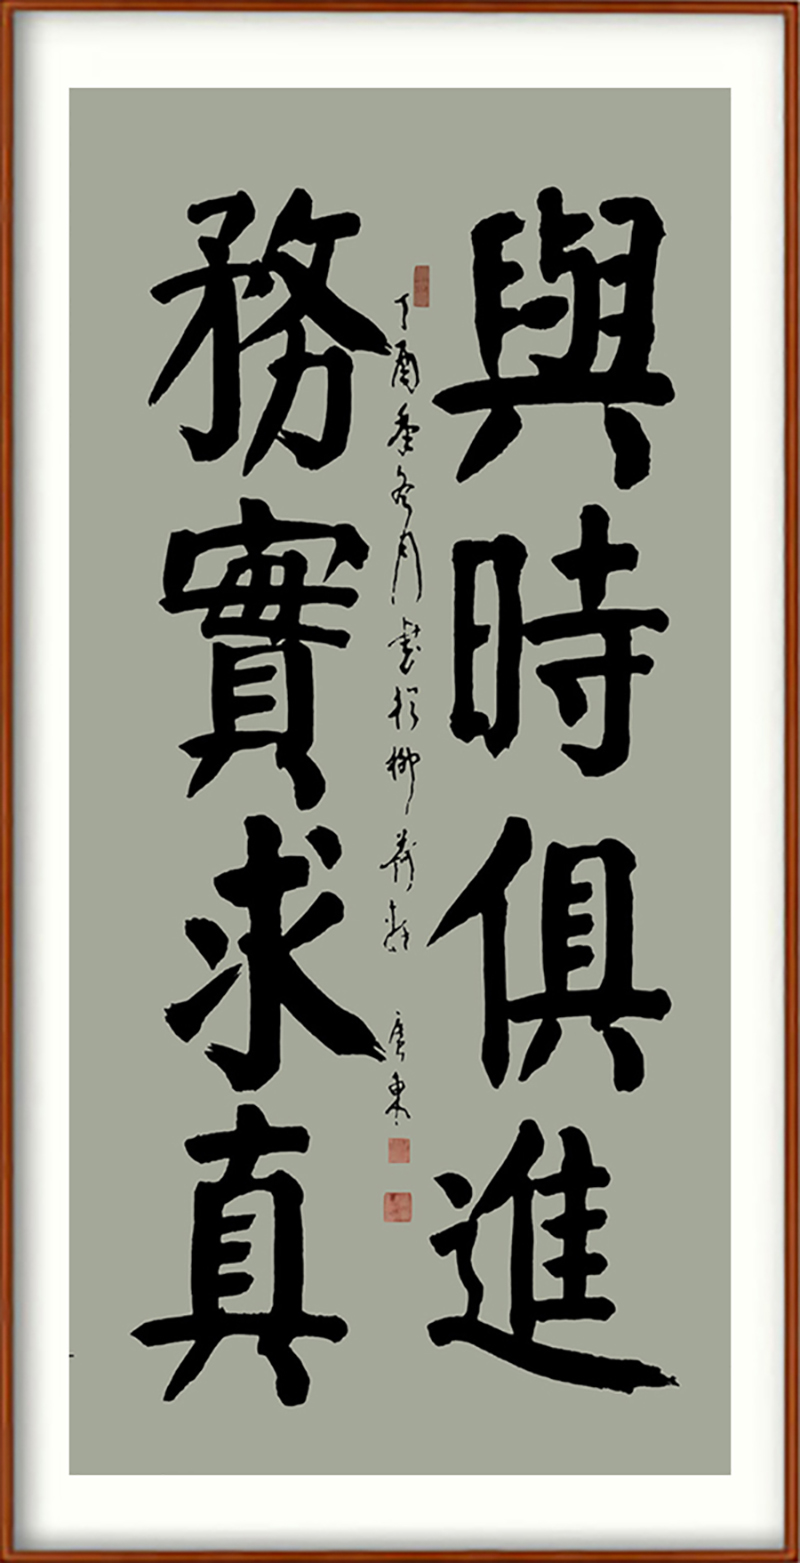 與時俱進
丁酉年冬月書於柳荷軒 廣東
務實求真